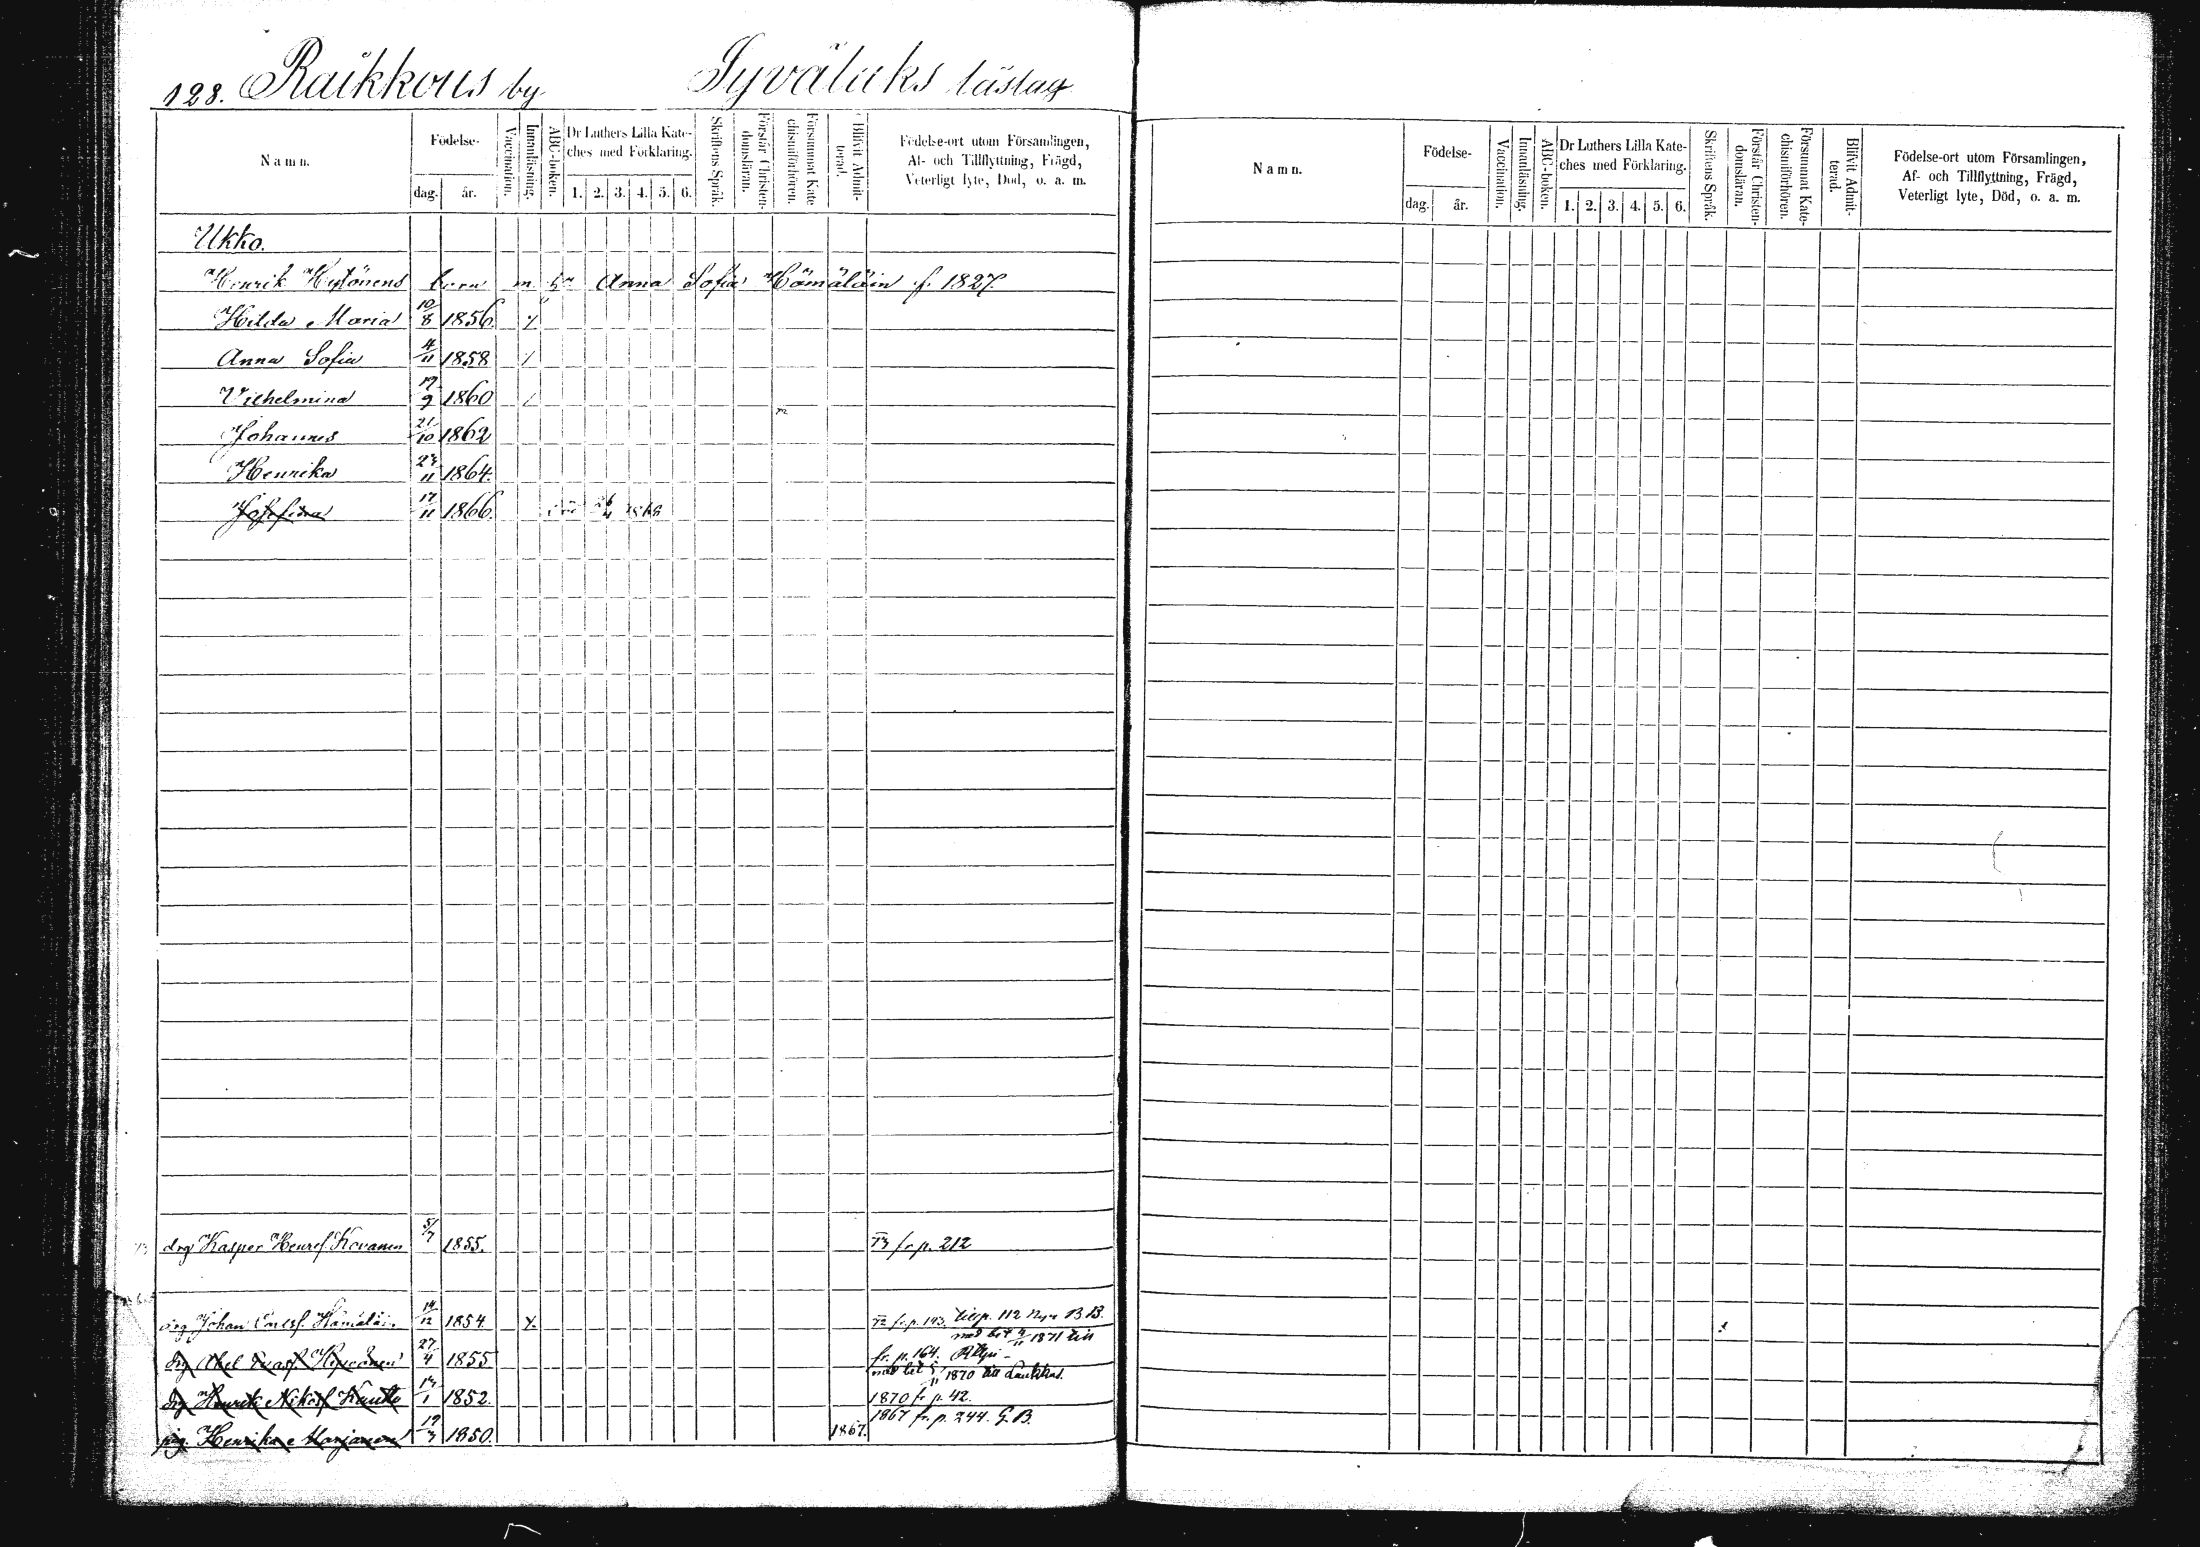 128. Raikkous by Syväluks läslag
Namn. Födelse- dag. år. Vaccination. Innanläsning. ABC-boken. Dr Luthers Lilla Kateches med Förklaring. 1. 2. 3. 4. 5. 6. Skriftens Språk. Förstår Christendomsläran. Försummat Katechismiförhören. Blifvit Admitterad. Födelse-ort utom Församlingen, Af- och Tillflyttning, Frägd, Veterligt lyte, Död, o. a. m.
Ukko.
Henrik Hytönens barn m. hu Anna Sofia Hämäläin f. 1827
Hilda Maria 10/8 1856.
Anna Sofia 4/11 1858
Vilhelmina 19/9 1860
Johannes 21/10 1862
Henrika 23/11 1864.
Josefina 17/11 1866.
drg Kasper Henrsf. Kovanen 5/7 1855. fr. p. 212
drg Johan Hämäläin 14/12 1854. x fr. p. 193. 112 B.B.
drg Abel 27/4 1855 fr. p. 164. 1871
drg Henrik 13/1 1852. 1870 fr. p. 42. 1870 till
pig. Henrika Marjanen 19/3 1850. 1867. 1867 fr. p. 244. G.B.
Namn. Födelse- dag. år. Vaccination. Innanläsning. ABC-boken. Dr Luthers Lilla Kateches med Förklaring. 1. 2. 3. 4. 5. 6. Skriftens Språk. Förstår Christendomsläran. Försummat Katechismiförhören. Blifvit Admitterad. Födelse-ort utom Församlingen, Af- och Tillflyttning, Frägd, Veterligt lyte, Död, o. a. m.